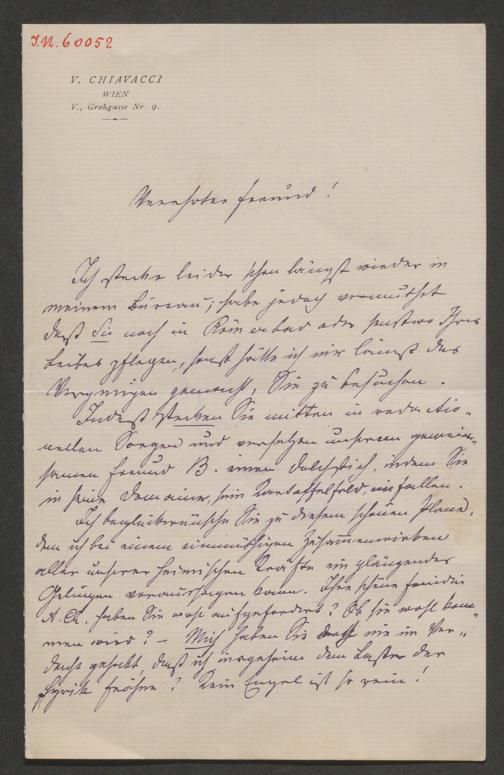 I.N. 60052
V. CHIAVACCI
WIEN
V., Grohgasse Nr. 9.
Verehrter Freund!
Ich stecke leider schon längst wieder in
meinem Bureau; habe jedoch vermuthet
daß Sie noch in oder sonstwo Ihres
Leibes pflegen, sonst hätte ich mir längst das
Vergnügen gemacht, Sie zu besuchen.
Indeß stecken Sie mitten in redactio-
nellen Sorgen und versetzen unserem gemein-
samen Freund B. einen Dolchstich, indem Sie
in seine Domaine, sein Kartoffelfeld, einfallen.
Ich beglückwünsche Sie zu diesem schönen Plane,
dem ich bei einem einmüthigen Zusammenwirken
aller unserer heimischen Kräfte ein glänzendes
Gelingen voraussagen kann. Ihre schöne Feindin
haben Sie wohl aufgefordert? Ob sie wohl kom-
men wird? – Mich haben Sie nie im Ver-
dacht gehabt, daß ich insgeheim dem Laster der
Lyrik fröhne? Kein Engel ist so rein!